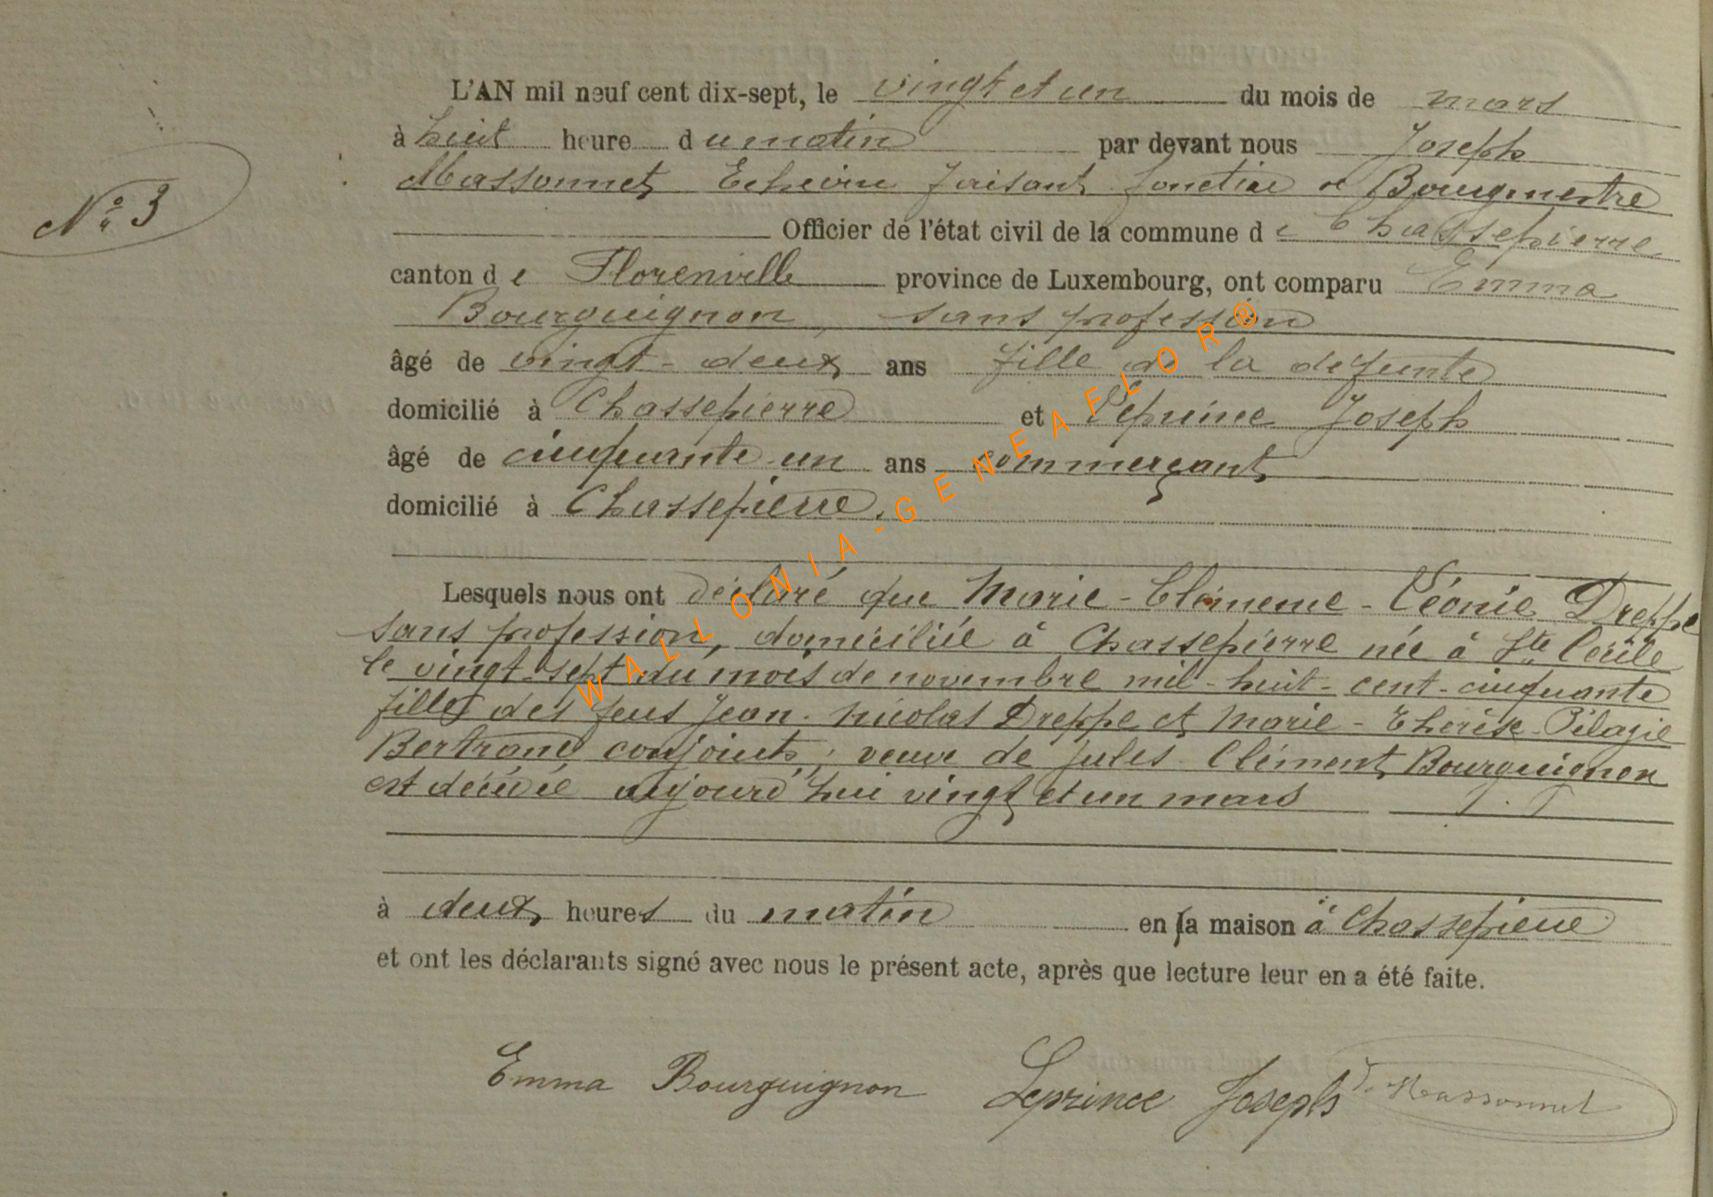 L'AN mil neuf cent dix-sept, le vingt et un du mois de mars
à huit heure du matin par devant nous Joseph
Massonnet, Echevin faisant fonction de Bourgmestre
Nº 3
Officier de l'état civil de la commune de Chassepierre
canton de Florenville province de Luxembourg, ont comparu Emma
Bourguignon, sans profession
âgé de vingt-deux ans fille de la défunte
domicilié à Chassepierre et Leprince Joseph
âgé de cinquante-un ans commerçant
domicilié à Chassepierre.
WALLONIA-GENEAFLOR®
Lesquels nous ont déclaré que Marie-Clémence-Léonie Dreppe
sans profession, domiciliée à Chassepierre née à Ste Cécile
le vingt-sept du mois de novembre mil-huit-cent-cinquante
fille des feus Jean-Nicolas Dreppe et Marie-Thérèse-Pélagie
Bertrand conjoints, veuve de Jules Clément Bourguignon
est décédée aujourd'hui vingt et un mars
à deux heures du matin en la maison à Chassepierre
et ont les déclarants signé avec nous le présent acte, après que lecture leur en a été faite.
Emma Bourguignon Leprince Joseph J. Massonnet